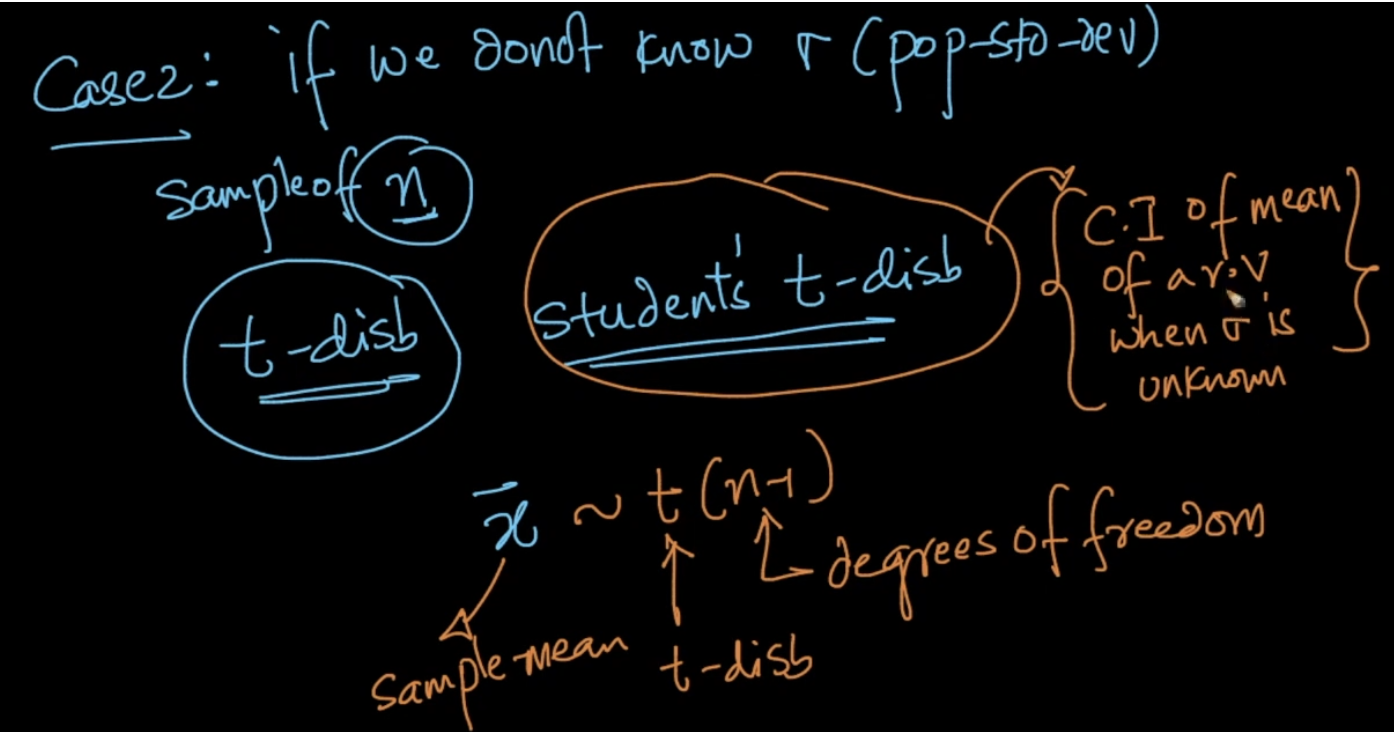 Case2: if we donot know σ (pop-std-dev)
sample of n
t-disb
student's t-disb
C.I of mean
of a r.v
when σ is
unknown
x̄ ~ t(n-1)
degrees of freedom
sample-mean
t-disb